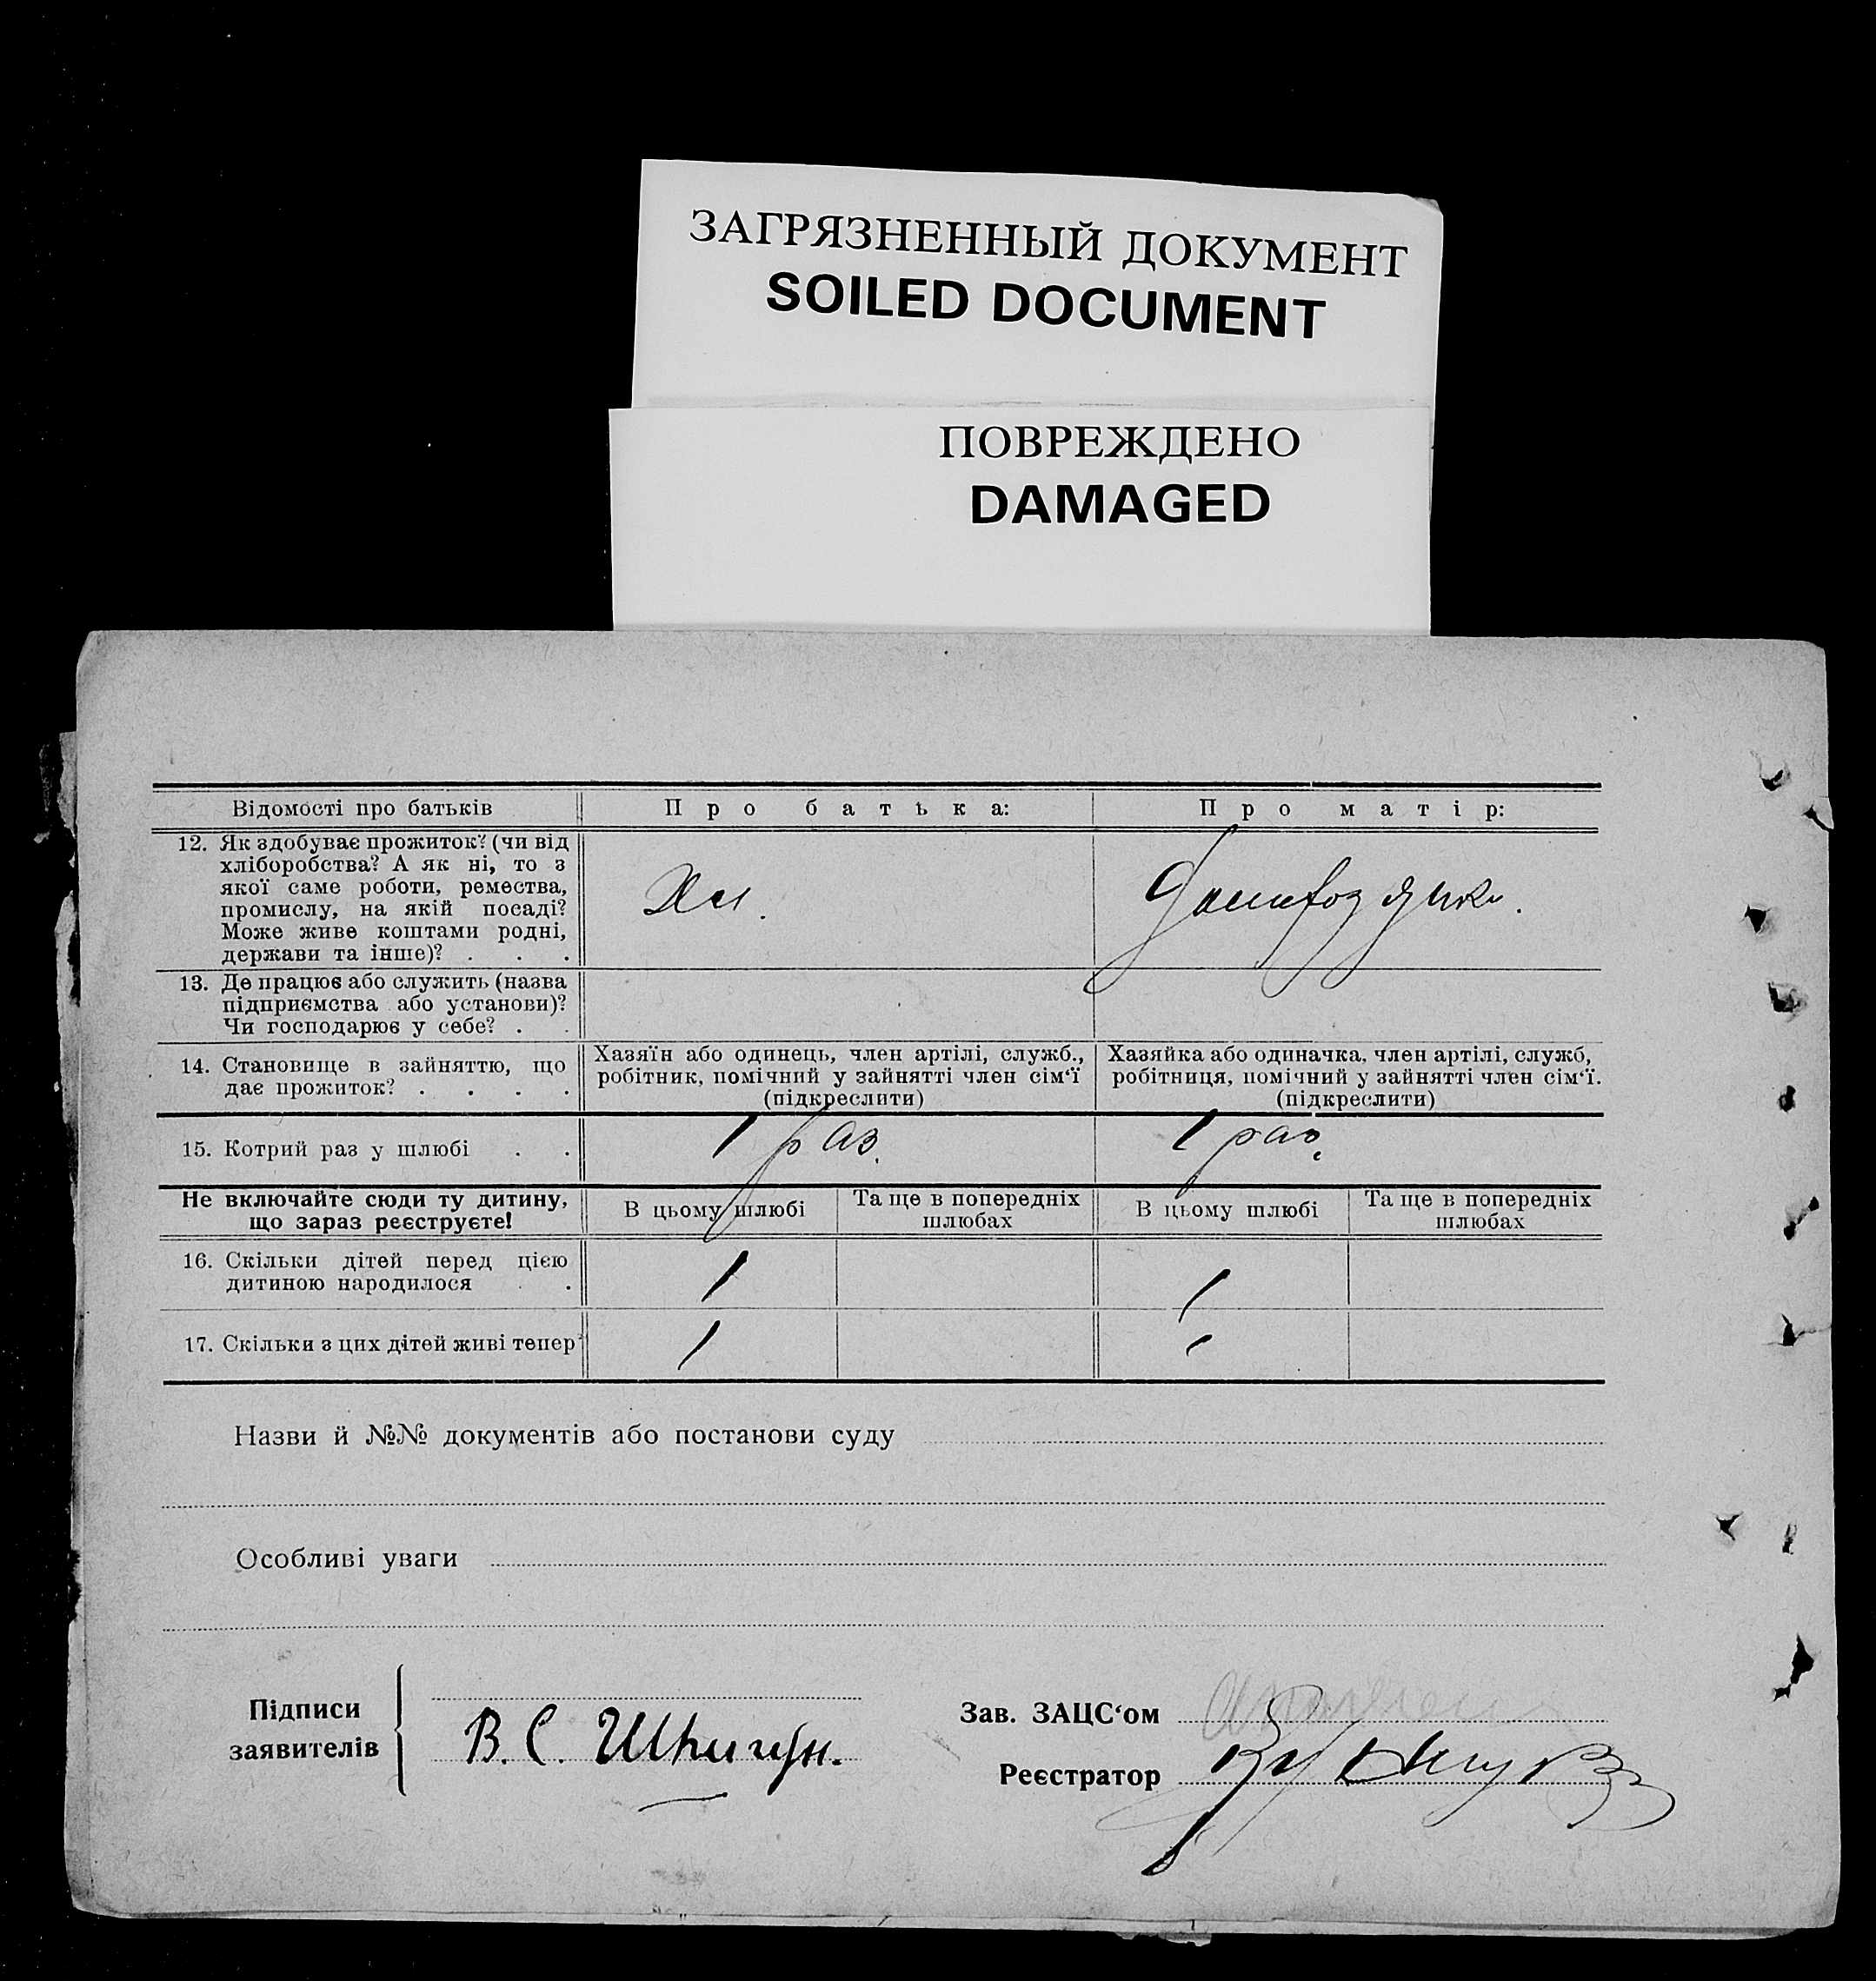 ЗАГРЯЗНЕННЫЙ ДОКУМЕНТ
SOILED DOCUMENT
ПОВРЕЖДЕНО
DAMAGED
Відомості про батьків
Про батька:
Про матір:
12. Як здобуває прожиток? (чи від
хліборобства? А як ні, то з
якої саме роботи, ремества,
промислу, на якій посаді?
Може живе коштами родні,
держави та інше)? . . .
Хл.
13. Де працює або служить (назва
підприємства або установи)?
Чи господарює у себе? . .
14. Становище в зайняттю, що
дає прожиток? . . . .
Хазяїн або одинець, член артілі, служб.,
робітник, помічний у зайнятті член сім‘ї
(підкреслити)
Хазяйка або одиначка, член артілі, служб,
робітниця, помічний у зайнятті член сім‘ї.
(підкреслити)
15. Котрий раз у шлюбі . .
1 раз.
1 раз.
Не включайте сюди ту дитину,
що зараз реєструєте!
В цьому шлюбі
Та ще в попередніх
шлюбах
В цьому шлюбі
Та ще в попередніх
шлюбах
16. Скільки дітей перед цією
дитиною народилося . .
1
1
17. Скільки з цих дітей живі тепер?
1
1
Назви й №№ документів або постанови суду
Особливі уваги
Підписи
заявителів
В. С. Шпигун.
Зав. ЗАЦС‘ом
Реєстратор